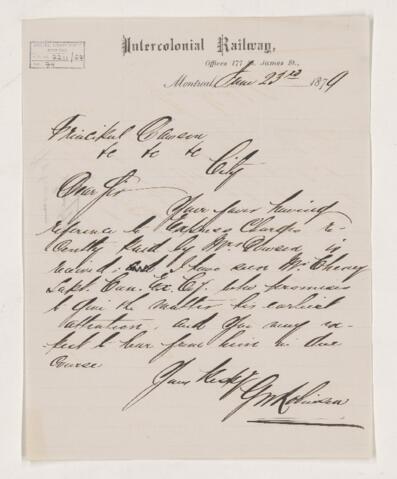 Intercolonial Railway,
Offices 177 St. James St.,
Montreal, June 23rd 1879
Principal Dawson
&c &c &c
City
Dear Sir
Your favor having
reference to Express Charges re-
cently paid by Mrs Dawson is
received; and I have seen Mr. Cheney
Supt. Can. Ex. Cy. who promises
to give the matter his earliest
attention, and you may ex-
pect to hear from him in due
course
Yours Respy
GW Robinson